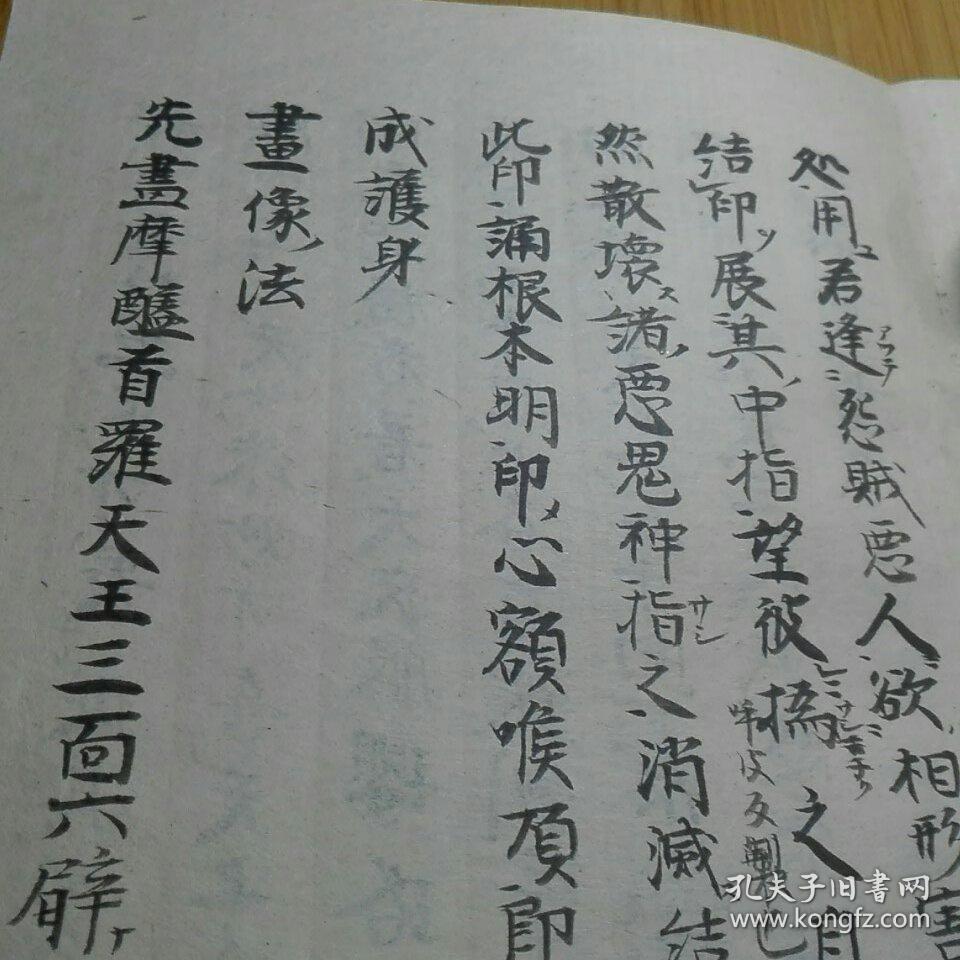 処用ユ若逢アフテ怨賊悪人欲相形害
結印ソ展其中指望彼撝之自
呼皮反製也
然散壊ス諸悪鬼神指サシ之消滅結
此印誦根本明印メ心額喉頂即
成護身
畫像ノ法
先畫摩醯首羅天王三面六臂
孔夫子旧書网
www.kongfz.com